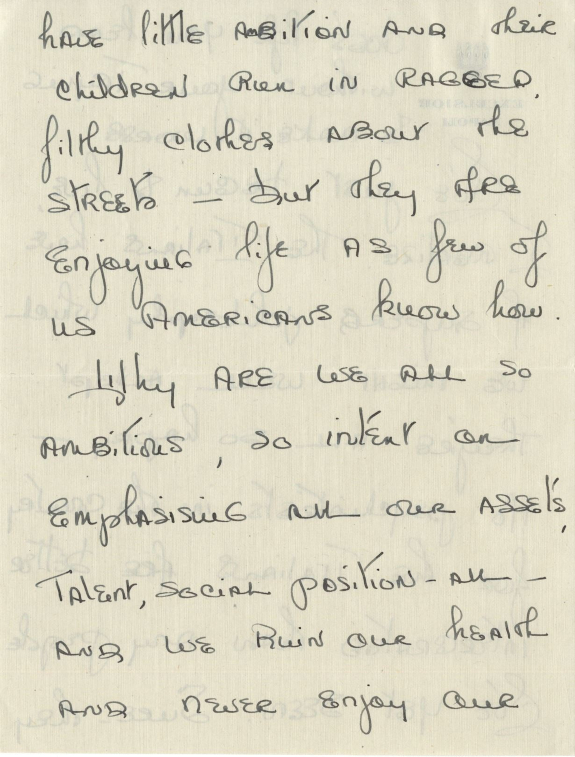 have little ambition and their
children run in ragged,
filthy clothes about the
streets — but they are
enjoying life as few of
us Americans know how.
Why are we all so
ambitious, so intent on
emphasising all our assets,
talent, social position - all -
and we ruin our health
and never enjoy our